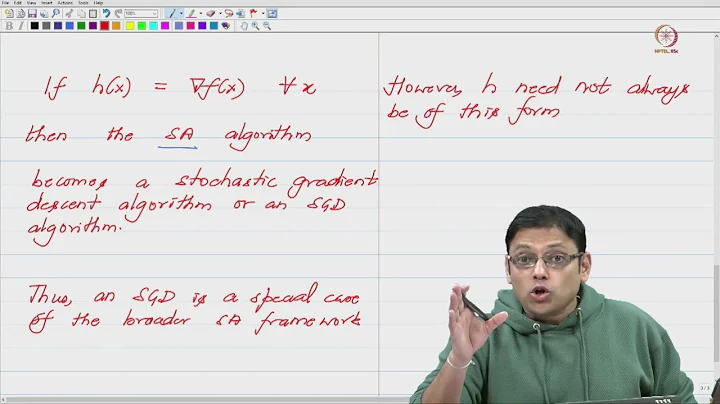 File Edit View Insert Actions Tools Help
If h(x) = ∇f(x) ∀ x
then the SA algorithm
becomes a stochastic gradient
descent algorithm or an SGD
algorithm.
Thus, an SGD is a special case
of the broader SA framework
However, h need not always
be of this form
NPTEL IISc
3 / 3